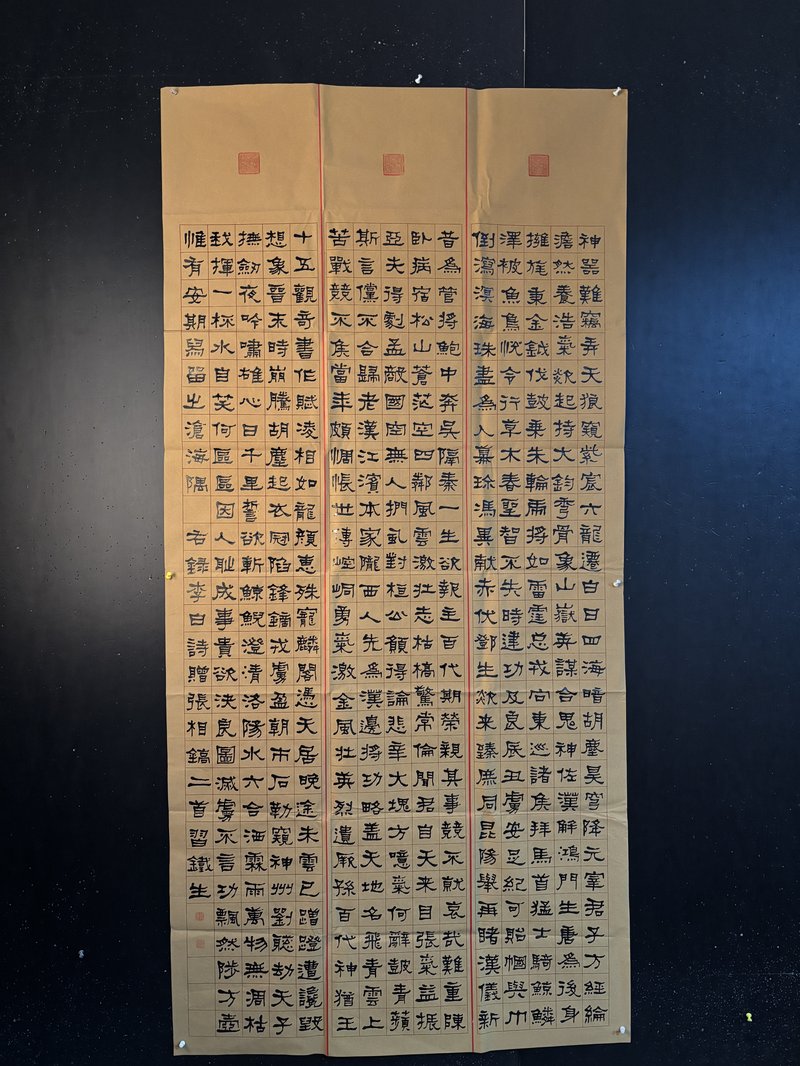 神器難竊弄天狼窺紫宸六龍遷白日四海暗胡塵昊穹降元宰君子方經綸
澹然養浩氣欻起持大鈞秀骨象山嶽英謀合鬼神佐漢解鴻門生唐為後身
擁旄秉金鉞伐鼓乘朱輪虎將如雷霆总戎向東巡諸侯拜馬首猛士騎鯨鱗
澤被魚鳥悅令行草木春聖智不失時建功及良辰丑虜安足紀可貽幗與巾
倒瀉溟海珠盡為入幕珍馮異献赤伏鄧生欻来臻庶同昆陽舉再睹漢儀新
昔為管將鮑中奔吳隔秦一生欲報主百代期榮親其事競不就哀哉難重陳
臥病宿松山蒼茫空四鄰風雲激壯志枯槁驚常倫聞君自天来目張氣益振
亞夫得劇孟敵國空無人捫虱對桓公願得論悲辛大塊方噫氣何辭鼓青蘋
斯言儻不合歸老漢江濱本家隴西人先為漢邊將功略蓋天地名飛青雲上
苦戰競不侯當年頗惆悵世傳崆峒勇氣激金風壯英烈遺厥孫百代神猶王
十五觀奇書作賦凌相如龍顏惠殊寵麟閣憑天居晚途未雲已蹭蹬遭讒毀
想象晉末時崩騰胡塵起衣冠陷鋒鏑戎虜盈朝市石勒窺神州劉聰劫天子
撫劍夜吟嘯雄心日千里誓欲斬鯨鯢澄清洛陽水六合洒霖雨萬物無凋枯
我揮一杯水自笑何區區因人耻成事貴欲決良圖滅虜不言功飄然陟方壺
惟有安期舄留之滄海隅 右錄李白詩贈張相鎬二首習鐵生